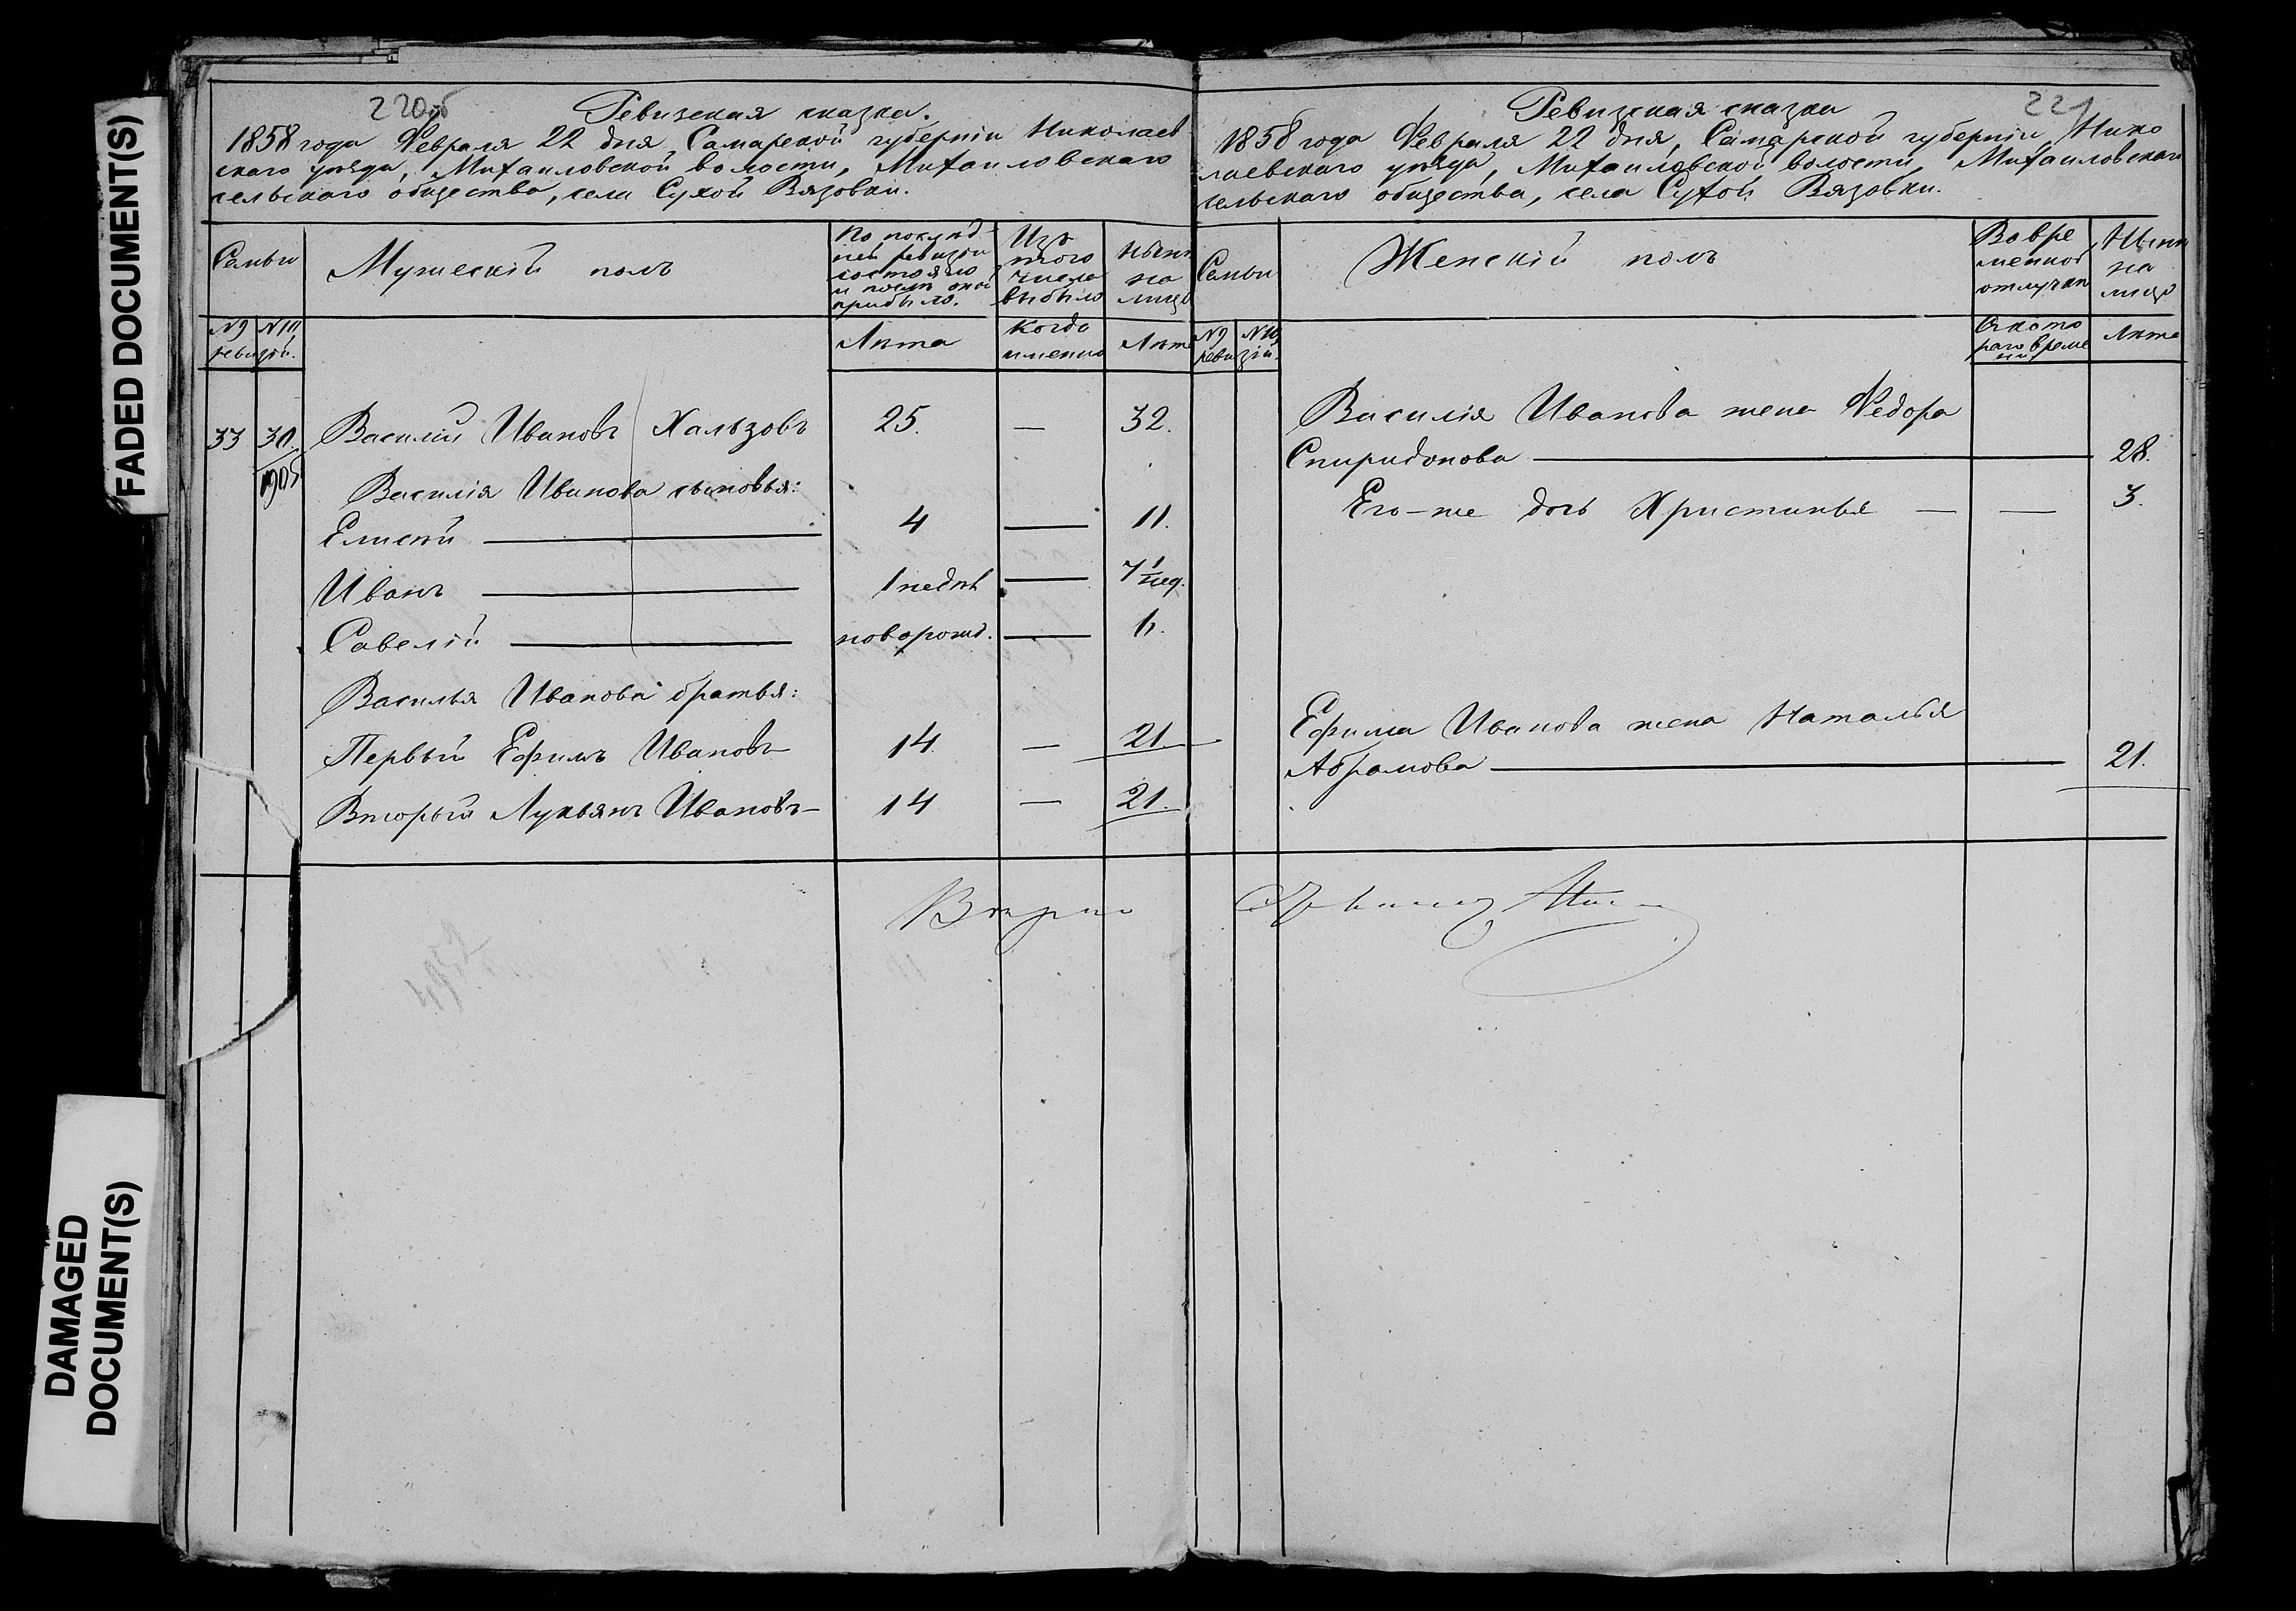 FADED DOCUMENT(S)
DAMAGED
DOCUMENT(S)
220об
Ревизская сказка.
1858 года Февраля 22 дня, Самарской губерніи Николаев
скаго уѣзда, Михаиловской волости, Михаиловскаго
сельскаго общества, села Сухой Вязовки.
Семьи
Мужескій полъ
По послѣд-
ней ревизіи
состояло
и послѣ оной
прибыло.
Изъ
того
числа
выбыло
Нынѣ
на
лицо
№ 9 № 10
ревизій.
Лѣта
Когда
именно
Лѣта
33 30. Василій Ивановъ Хальзовъ 25. — 32.
Василія Иванова сыновья:
Елисѣй 4 — 11.
Иванъ 1 недѣл — 7 1/нед.
Савелій новорожд. — 6.
Василья Иванова братья:
Первый Ефимъ Ивановъ 14 — 21.
Вторый Лукьянъ Ивановъ 14 — 21.
Вѣрно
221
Ревизская сказка
1858 года Февраля 22 дня, Самарской губерніи, Нико
лаевскаго уѣзда, Михаиловской волости, Михаиловскаго
сельскаго общества, села Сухой Вязовки.
Семьи
Женскій полъ
Во вре
менной
отлучкѣ
Нынѣ
на
лицо
№ 9 № 10
ревизій.
Съ кото
раго време
ни
Лѣта
Василія Иванова жена Федора
Спиридонова 28.
Его-же дочь Христинья — — 3.
Ефима Иванова жена Наталья
Абрамова 21.